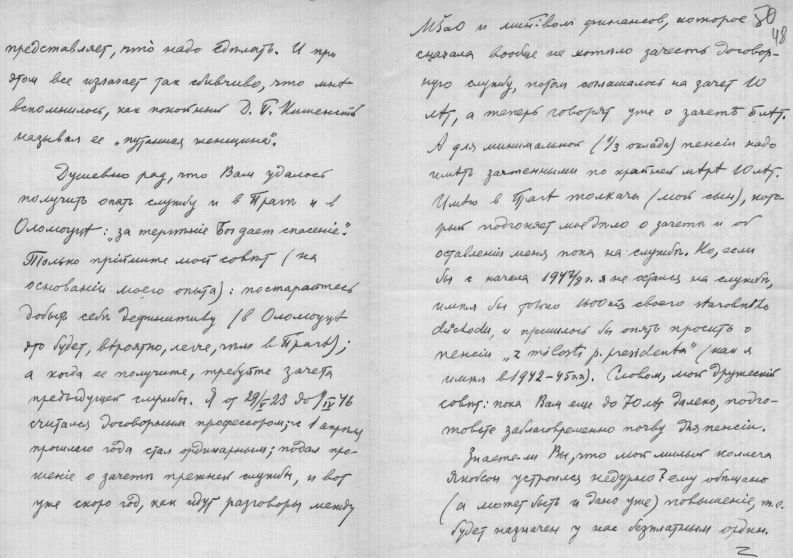 представляет, что надо сдѣлать. И при
этом все излагает так сбивчиво, что мнѣ
вспомнилось, как покойный Д. П. Кишенскій
называл ее „путанная женщина“.
Душевно рад, что Вам удалось
получить опять службу и в Прагѣ и в
Оломоуцѣ: „за терпѣніе Бог дает спасеніе“.
Только пріймите мой совѣт (на
основаніи моего опыта): постарайтесь
добыть себѣ дефинитиву (в Оломоуцѣ
это будет, вѣроятно, легче, чѣм в Прагѣ);
а когда ее получите, требуйте зачета
предыдущей службы. Я от 29/V 23 до 1/IV 46
считался договорным профессором; с 1 апрѣля
прошлаго года стал ординарным; подал про-
шеніе о зачетѣ прежней службы, и вот
уже скоро год, как идут разговоры между
48
МŠаО и мин-вом финансов, которое
сначала вообще не хотѣло зачесть договор-
ную службу, потом соглашалось на зачет 10
лѣт, а теперь говорят уже о зачетѣ 5 лѣт.
А для минимальной (1/3 оклада) пенсіи надо
имѣть зачтенными по крайней мѣрѣ 10 лѣт.
Имѣю в Прагѣ толкача (мой сын), кото-
рый подгоняет мое дѣло о зачетѣ и об
оставленіи меня пока на службѣ. Но, если
бы с начала 1947 г. я не остался на службѣ,
имѣл бы только 1600 кч своего starobního
důchodu, и пришлось бы опять просить о
пенсіи „z milosti p. presidenta“ (как я
имѣл в 1942–45 гг). Словом, мой дружескій
совѣт: пока Вам еще до 70 лѣт далеко, подго-
товьте заблаговременно почву для пенсіи.
Знаете-ли Вы, что мой милый коллега
Якобсон устроился недурно? ему обѣщано
(а может быть и дано уже) повышеніе, т.е.
будет назначен у нас безплатным ордин.